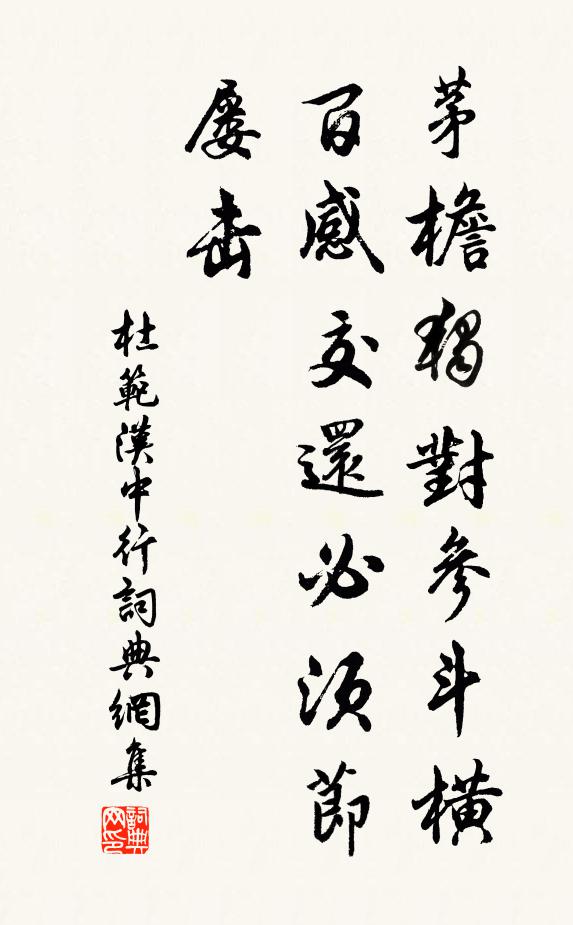 茅檐獨對參斗橫
百感交還必須節
屢擊
杜範漢中行詞典網集
詞典
网印